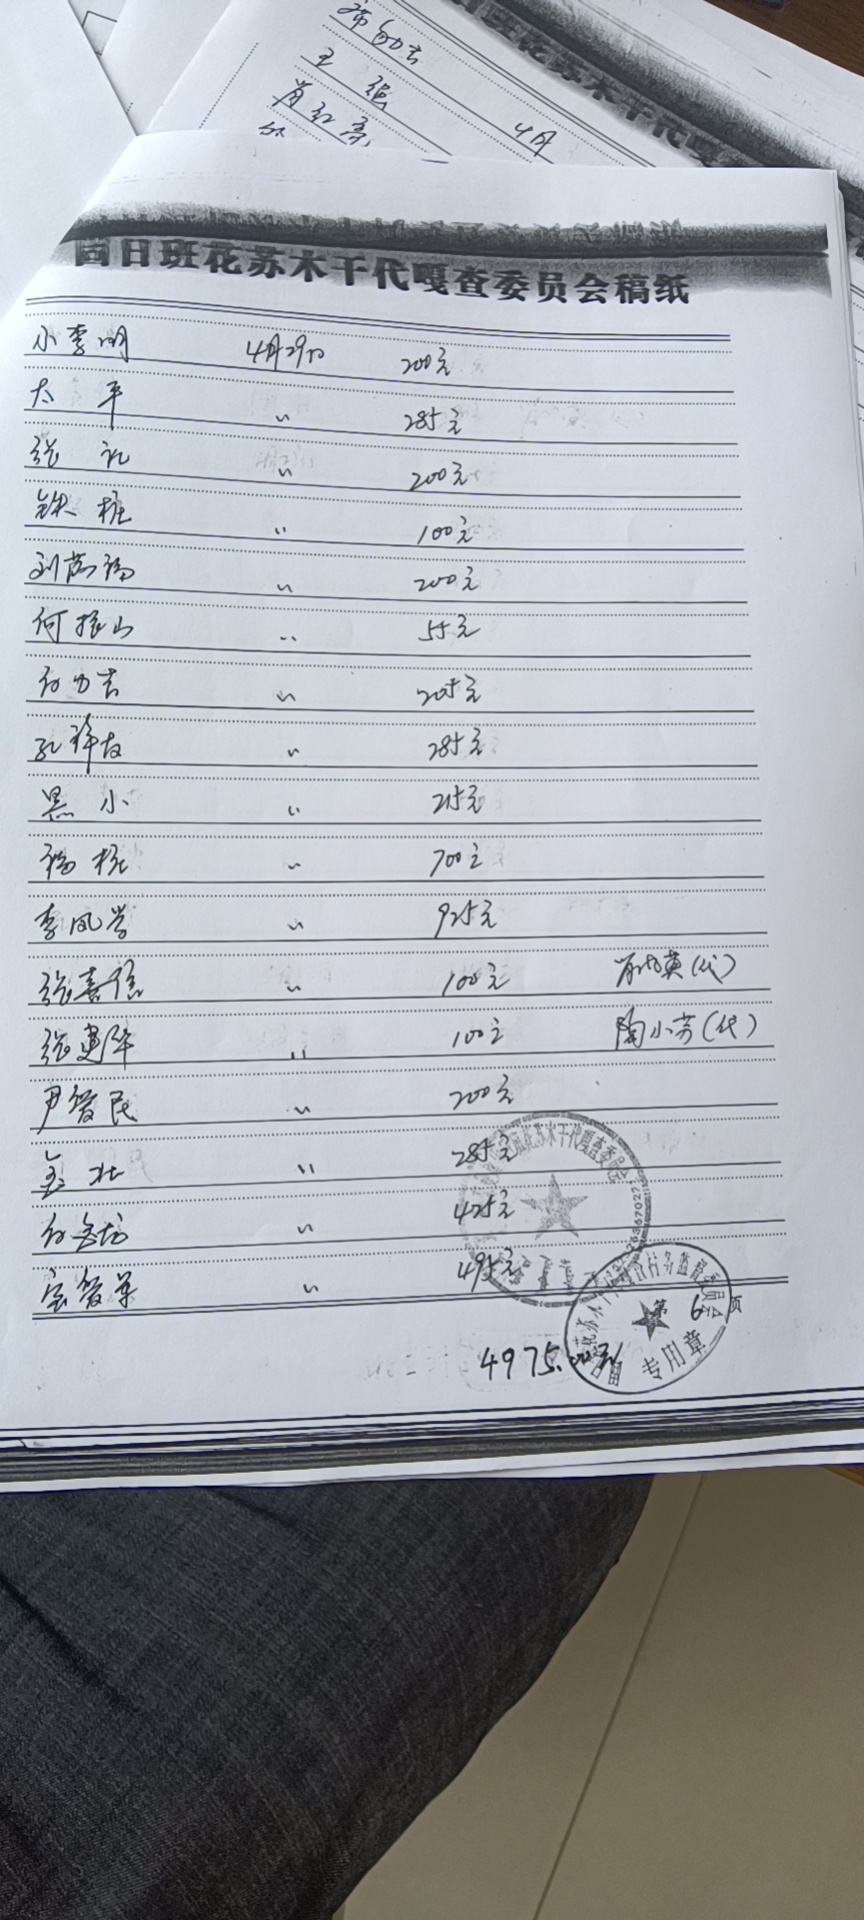 王 强
4月
固日班花苏木干代嘎查委员会稿纸
小李明 4月29日 200元
太平 〃 285元
张礼 〃 200元
铁柱 〃 100元
刘万福 〃 200元
何振山 〃 55元
白力吉 〃 205元
孔祥友 〃 285元
黑小 〃 215元
福柱 〃 700元
李凤芝 〃 925元
张喜信 〃 100元 英(代)
张建华 〃 100元 陶小芳(代)
尹智民 〃 200元
〃 285元
〃 425元
〃 495元
苏木干代嘎查委员会
第 6 页
专用章
4975.00元